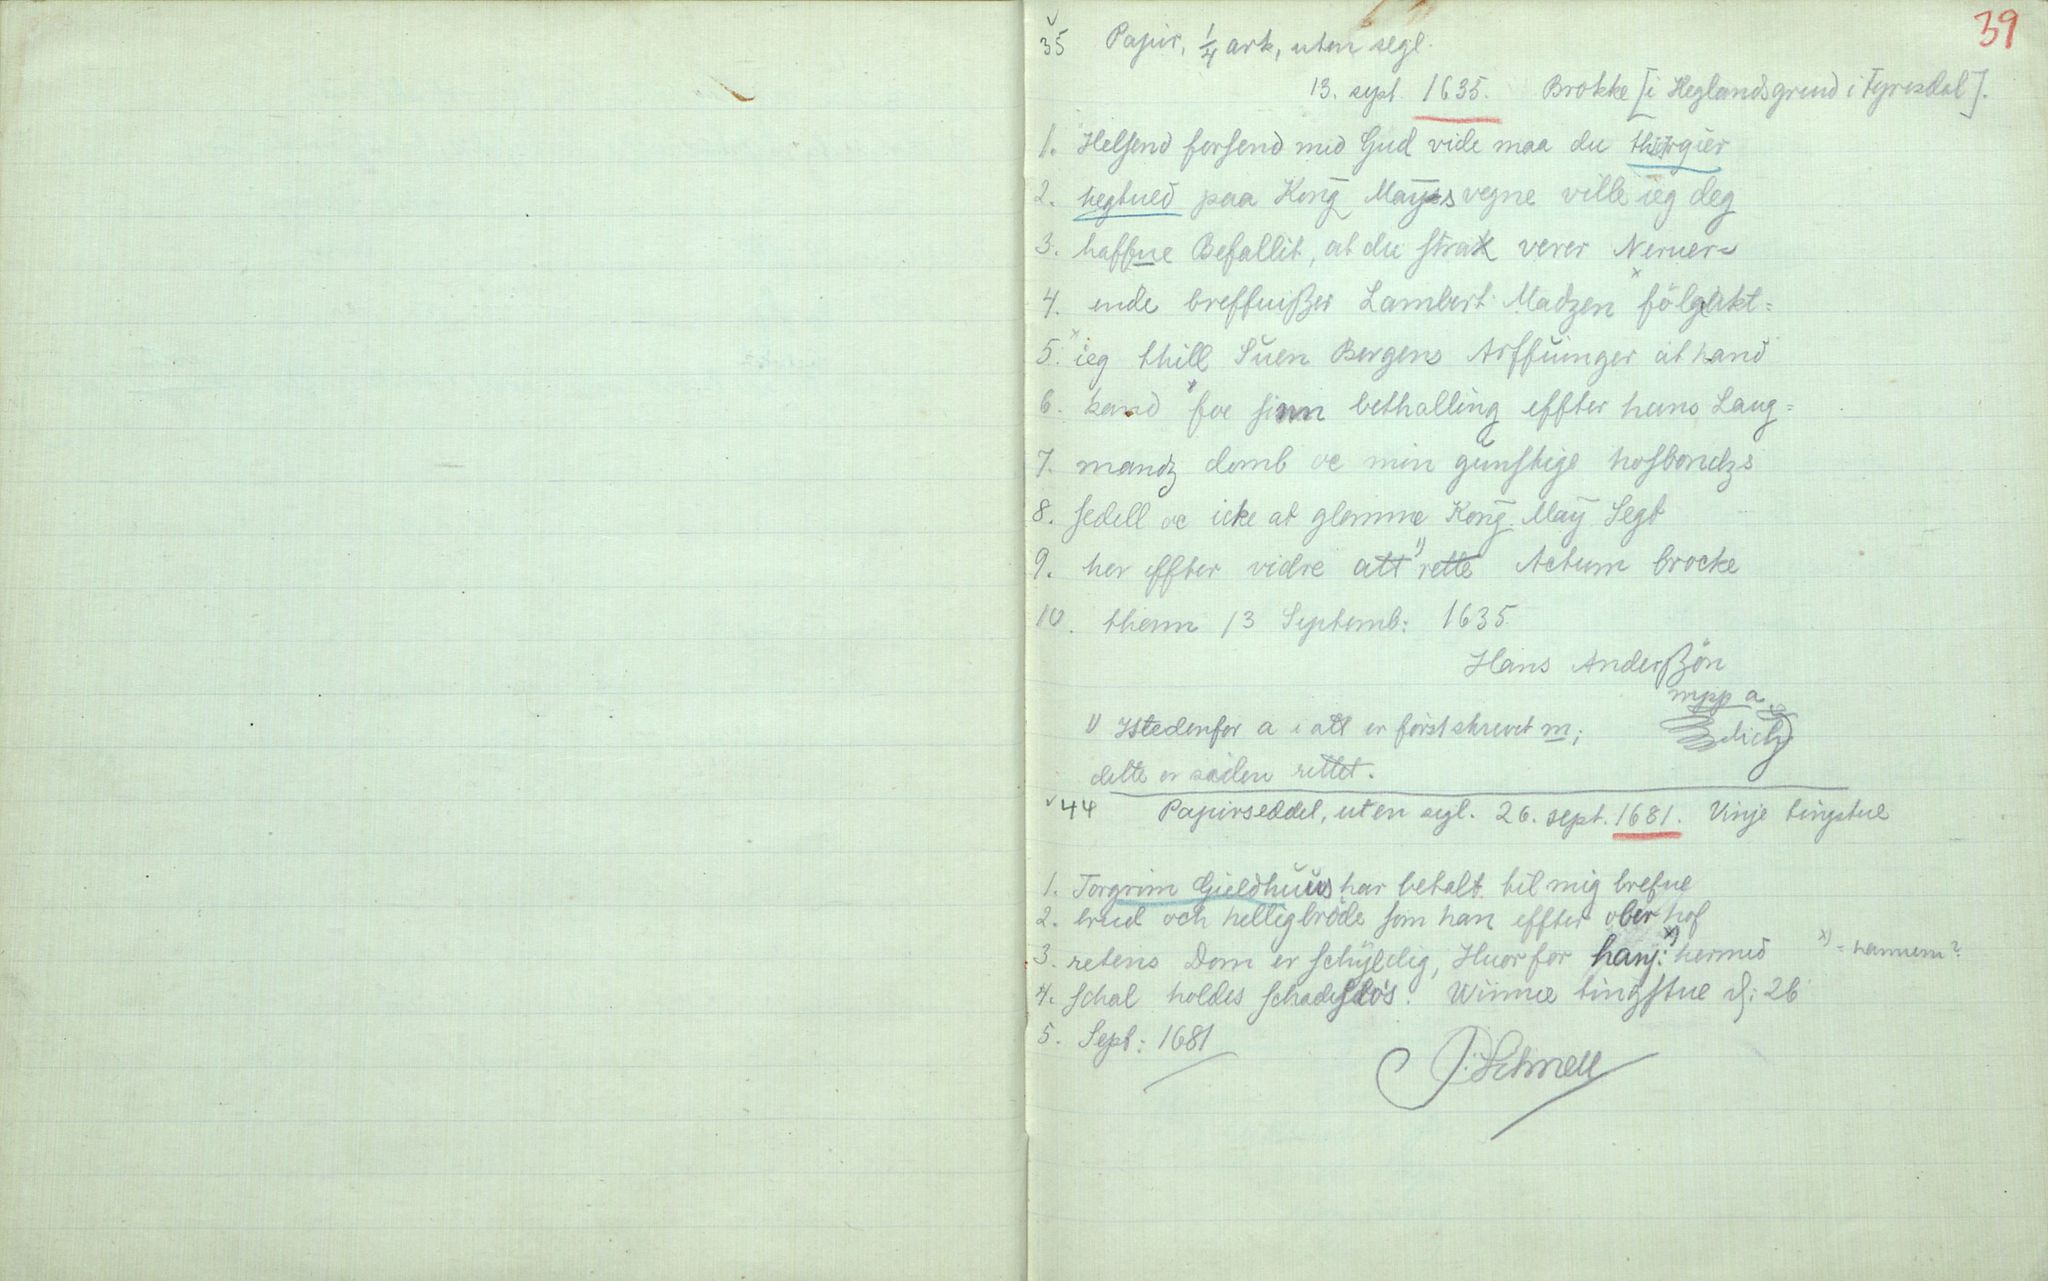 39
35 Papir, 1/4 ark, uten segl.
13. sept. 1635. Brokke [i Heglandsgrend i Fyresdal].
1. Helsend forsend med Gud vide maa du thorgier
2. hegtued paa Kong. May: vegne ville ieg deg
3. haffue Befallit, at du strax verer Neruer=
4. ende breffuißer Lambert Madzen fölgakt=
5. ieg thill Suen Bergens Arffuinger at hand
6. kand foe sinn bethalling effter hans Laug=
7. mandz domb oc min gunstige hosbondzs
8. sedell oc icke at glemme Kong. May Segt
9. her effter vidre att 1) rette Actum brocke
10. thenn 13 Septemb: 1635
Hans Anderßön
mpp a
1) Istedenfor a i att er først skrevet m;
dette er siden rettet.
44 Papirseddel, uten segl. 26. sept. 1681. Vinje tingstue
1. Torgrim Gieldhuus har betalt til mig brefue
2. brud och helligbröde som han effter ober hof
3. retens Dom er schyldig, Huor for hanj: x) hermed x) = hannem?
4. schal holdes schadeslös. Wiinne tingstue d: 26
5. Sept: 1681
P: Schnell